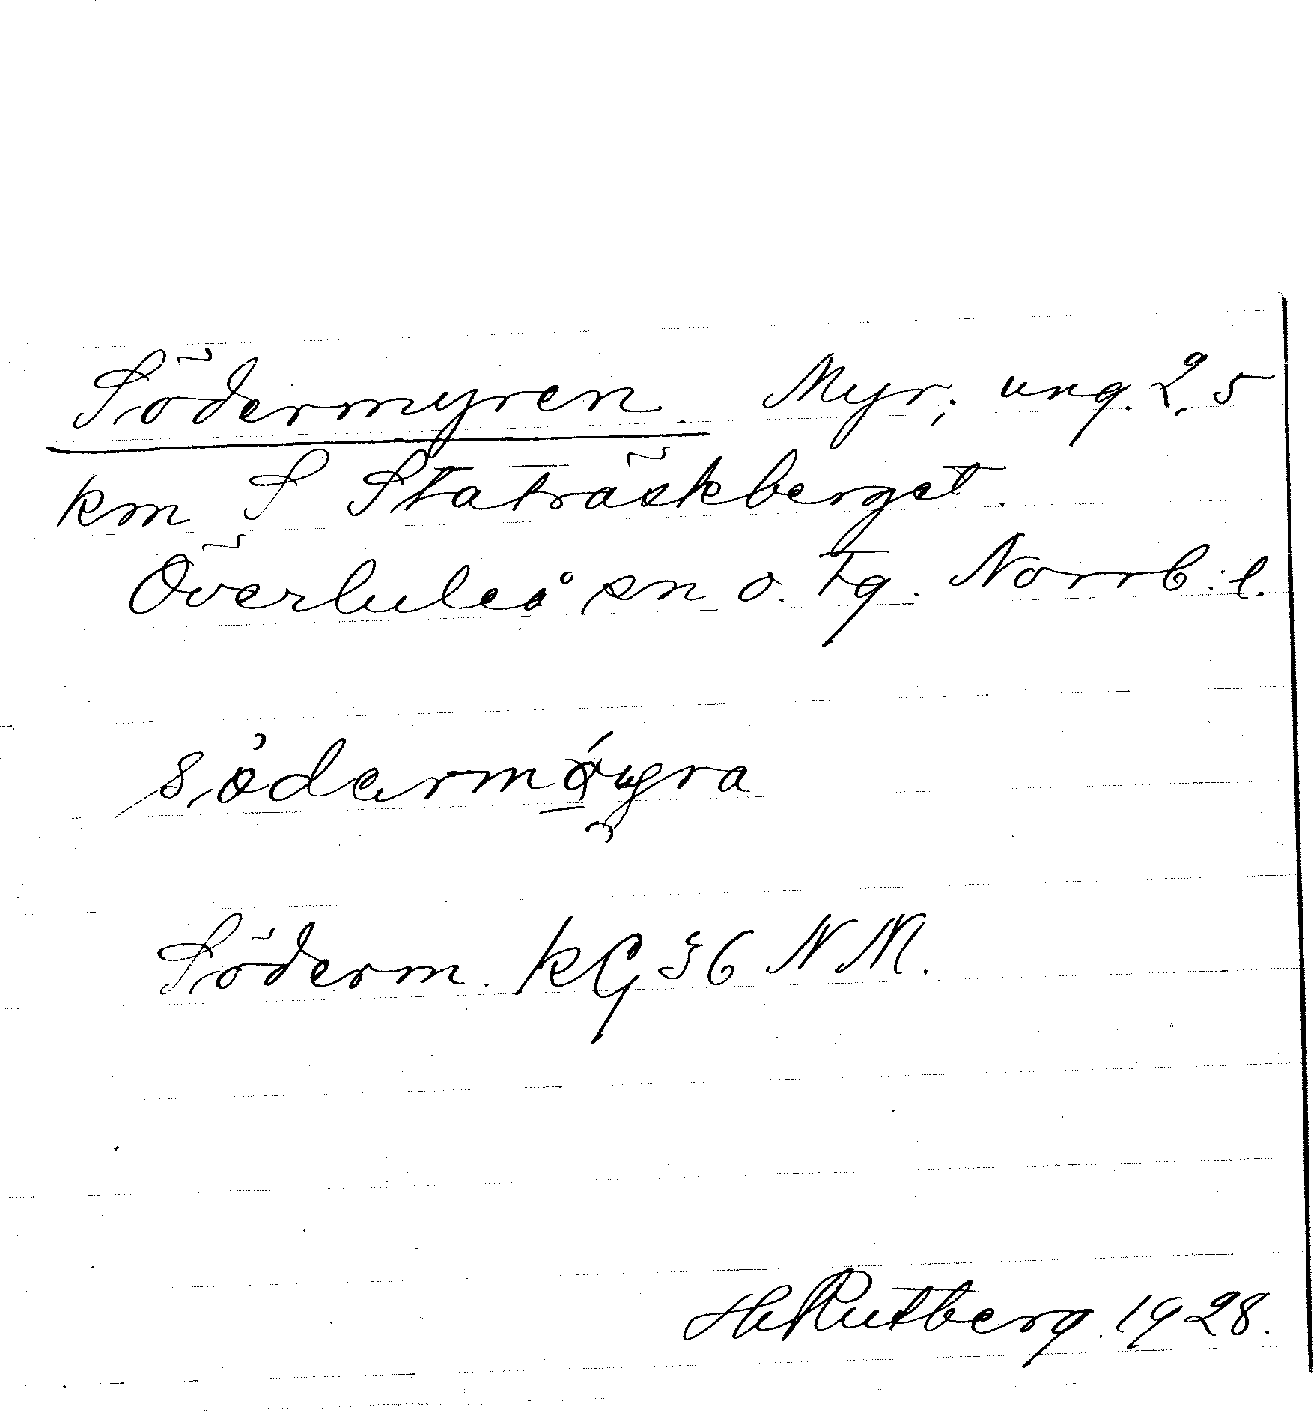 Södermyren. Myr; ung. 2,5
km S Staträskberget.
Överluleå sn o. tg. Norrb. l.
Söderm. KG 36 NM.
H Rutberg 1928.